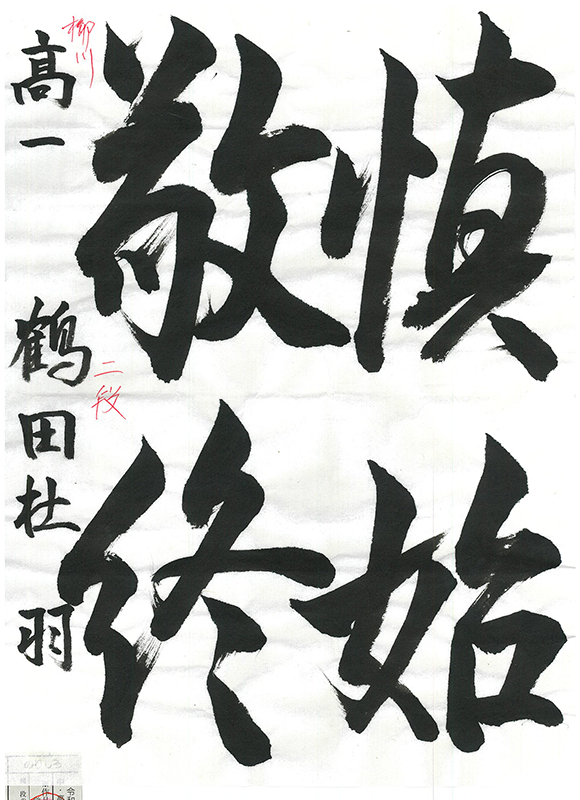 慎始
敬終
柳川
高一 鶴田杜羽
二段